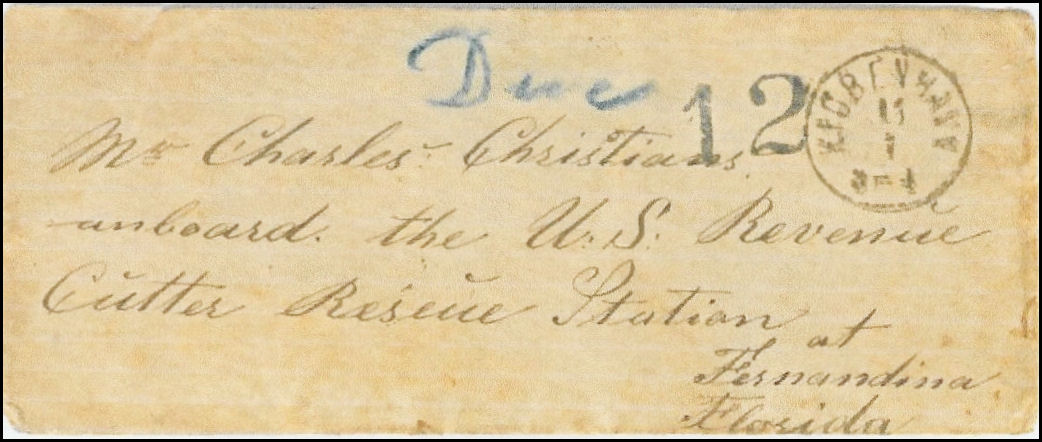 Due 12
KJØBENHAVN
Mr Charles Christians
onboard. the U.S. Revenue
Cutter Rescue Station
at
Fernandina
Florida